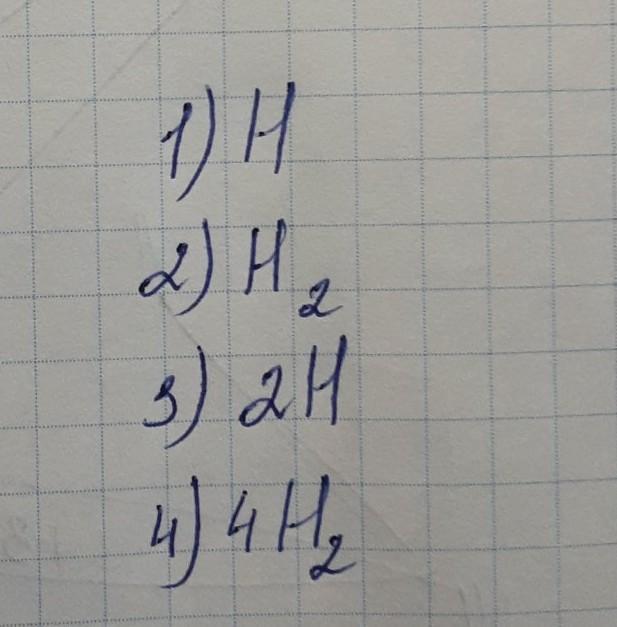 1) H
2) H₂
3) 2H
4) 4H₂